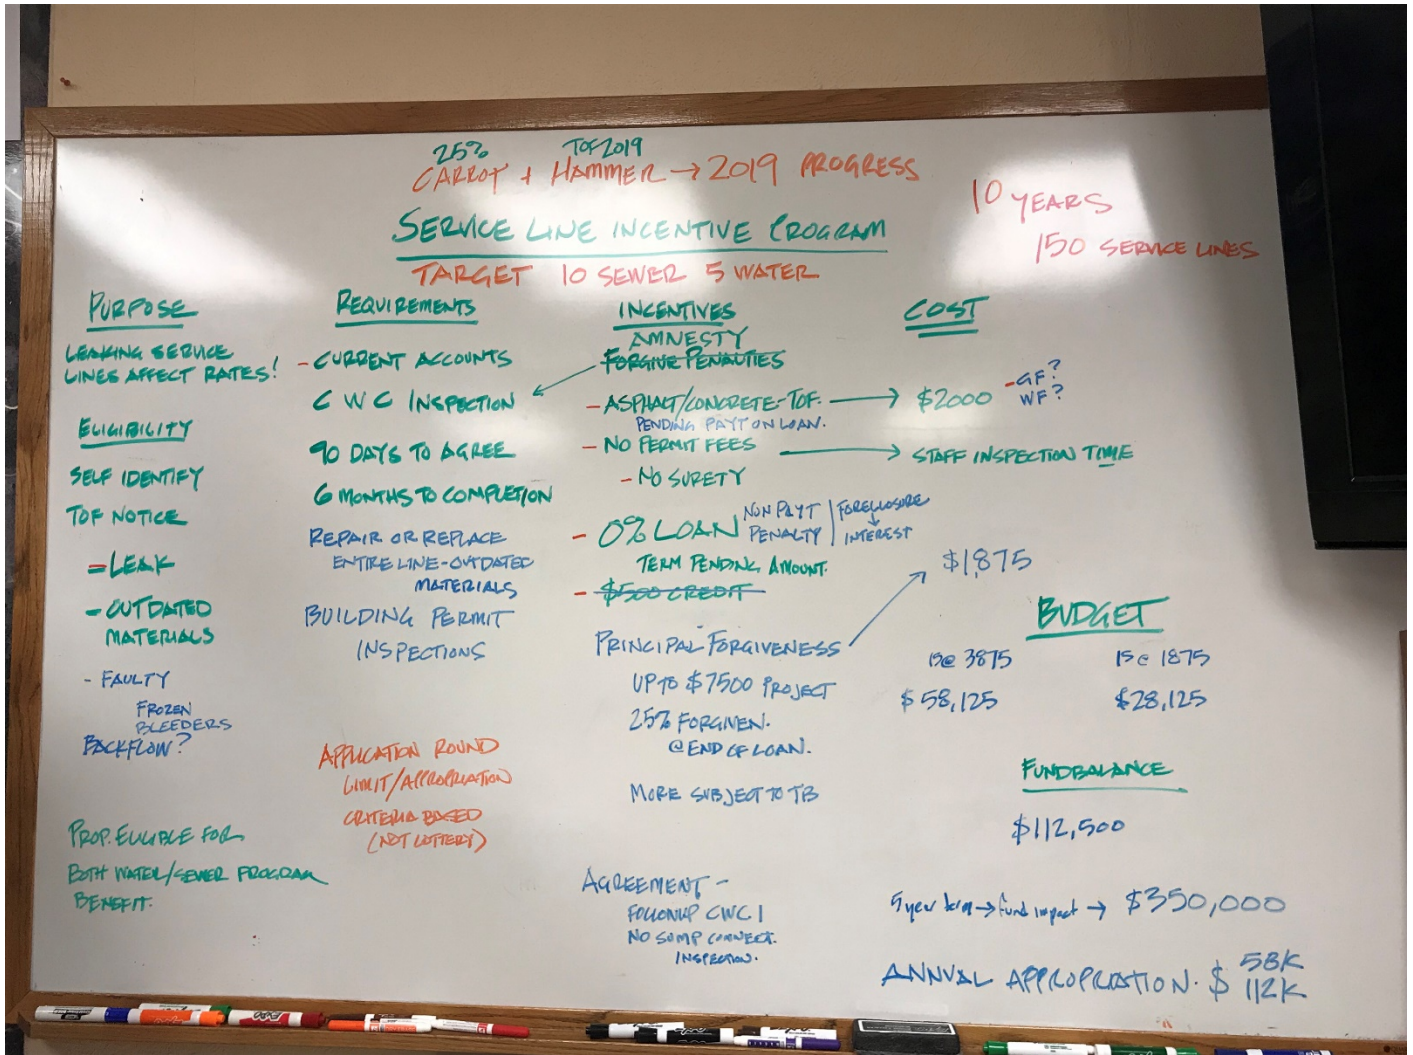 25% TOF 2019
CARROT + HAMMER → 2019 PROGRESS
10 YEARS
150 SERVICE LINES
SERVICE LINE INCENTIVE PROGRAM
TARGET 10 SEWER 5 WATER
PURPOSE
LEAKING SERVICE
LINES AFFECT RATES!
ELIGIBILITY
SELF IDENTIFY
TOF NOTICE
- LEAK
- OUTDATED
MATERIALS
- FAULTY
FROZEN
BLEEDERS
BACKFLOW?
PROP. ELIGIBLE FOR
BOTH WATER/SEWER PROGRAM
BENEFIT.
REQUIREMENTS
- CURRENT ACCOUNTS
CWC INSPECTION
90 DAYS TO AGREE
6 MONTHS TO COMPLETION
REPAIR OR REPLACE
ENTIRE LINE-OUTDATED
MATERIALS
BUILDING PERMIT
INSPECTIONS
APPLICATION ROUND
LIMIT/APPROPRIATION
CRITERIA BASED
(NOT LOTTERY)
INCENTIVES
AMNESTY
FORGIVE PENALTIES
- ASPHALT/CONCRETE-TOF.
PENDING PAYT ON LOAN.
- NO PERMIT FEES
- NO SURETY
- 0% LOAN
NON PAYT
PENALTY
FORECLOSURE
↓
INTEREST
TERM PENDING AMOUNT.
- $500 CREDIT
PRINCIPAL FORGIVENESS
UP TO $7500 PROJECT
25% FORGIVEN.
@ END OF LOAN.
MORE SUBJECT TO TB
AGREEMENT -
FOLLOWUP CWC I
NO SUMP CONNECT.
INSPECTION.
COST
→ $2000
- GF?
WF?
→ STAFF INSPECTION TIME
$1,875
BUDGET
15@ 3875
$58,125
15@ 1875
$28,125
FUNDBALANCE
$112,500
5 year term → fund impact → $350,000
ANNUAL APPROPRIATION. $ 58K
112K